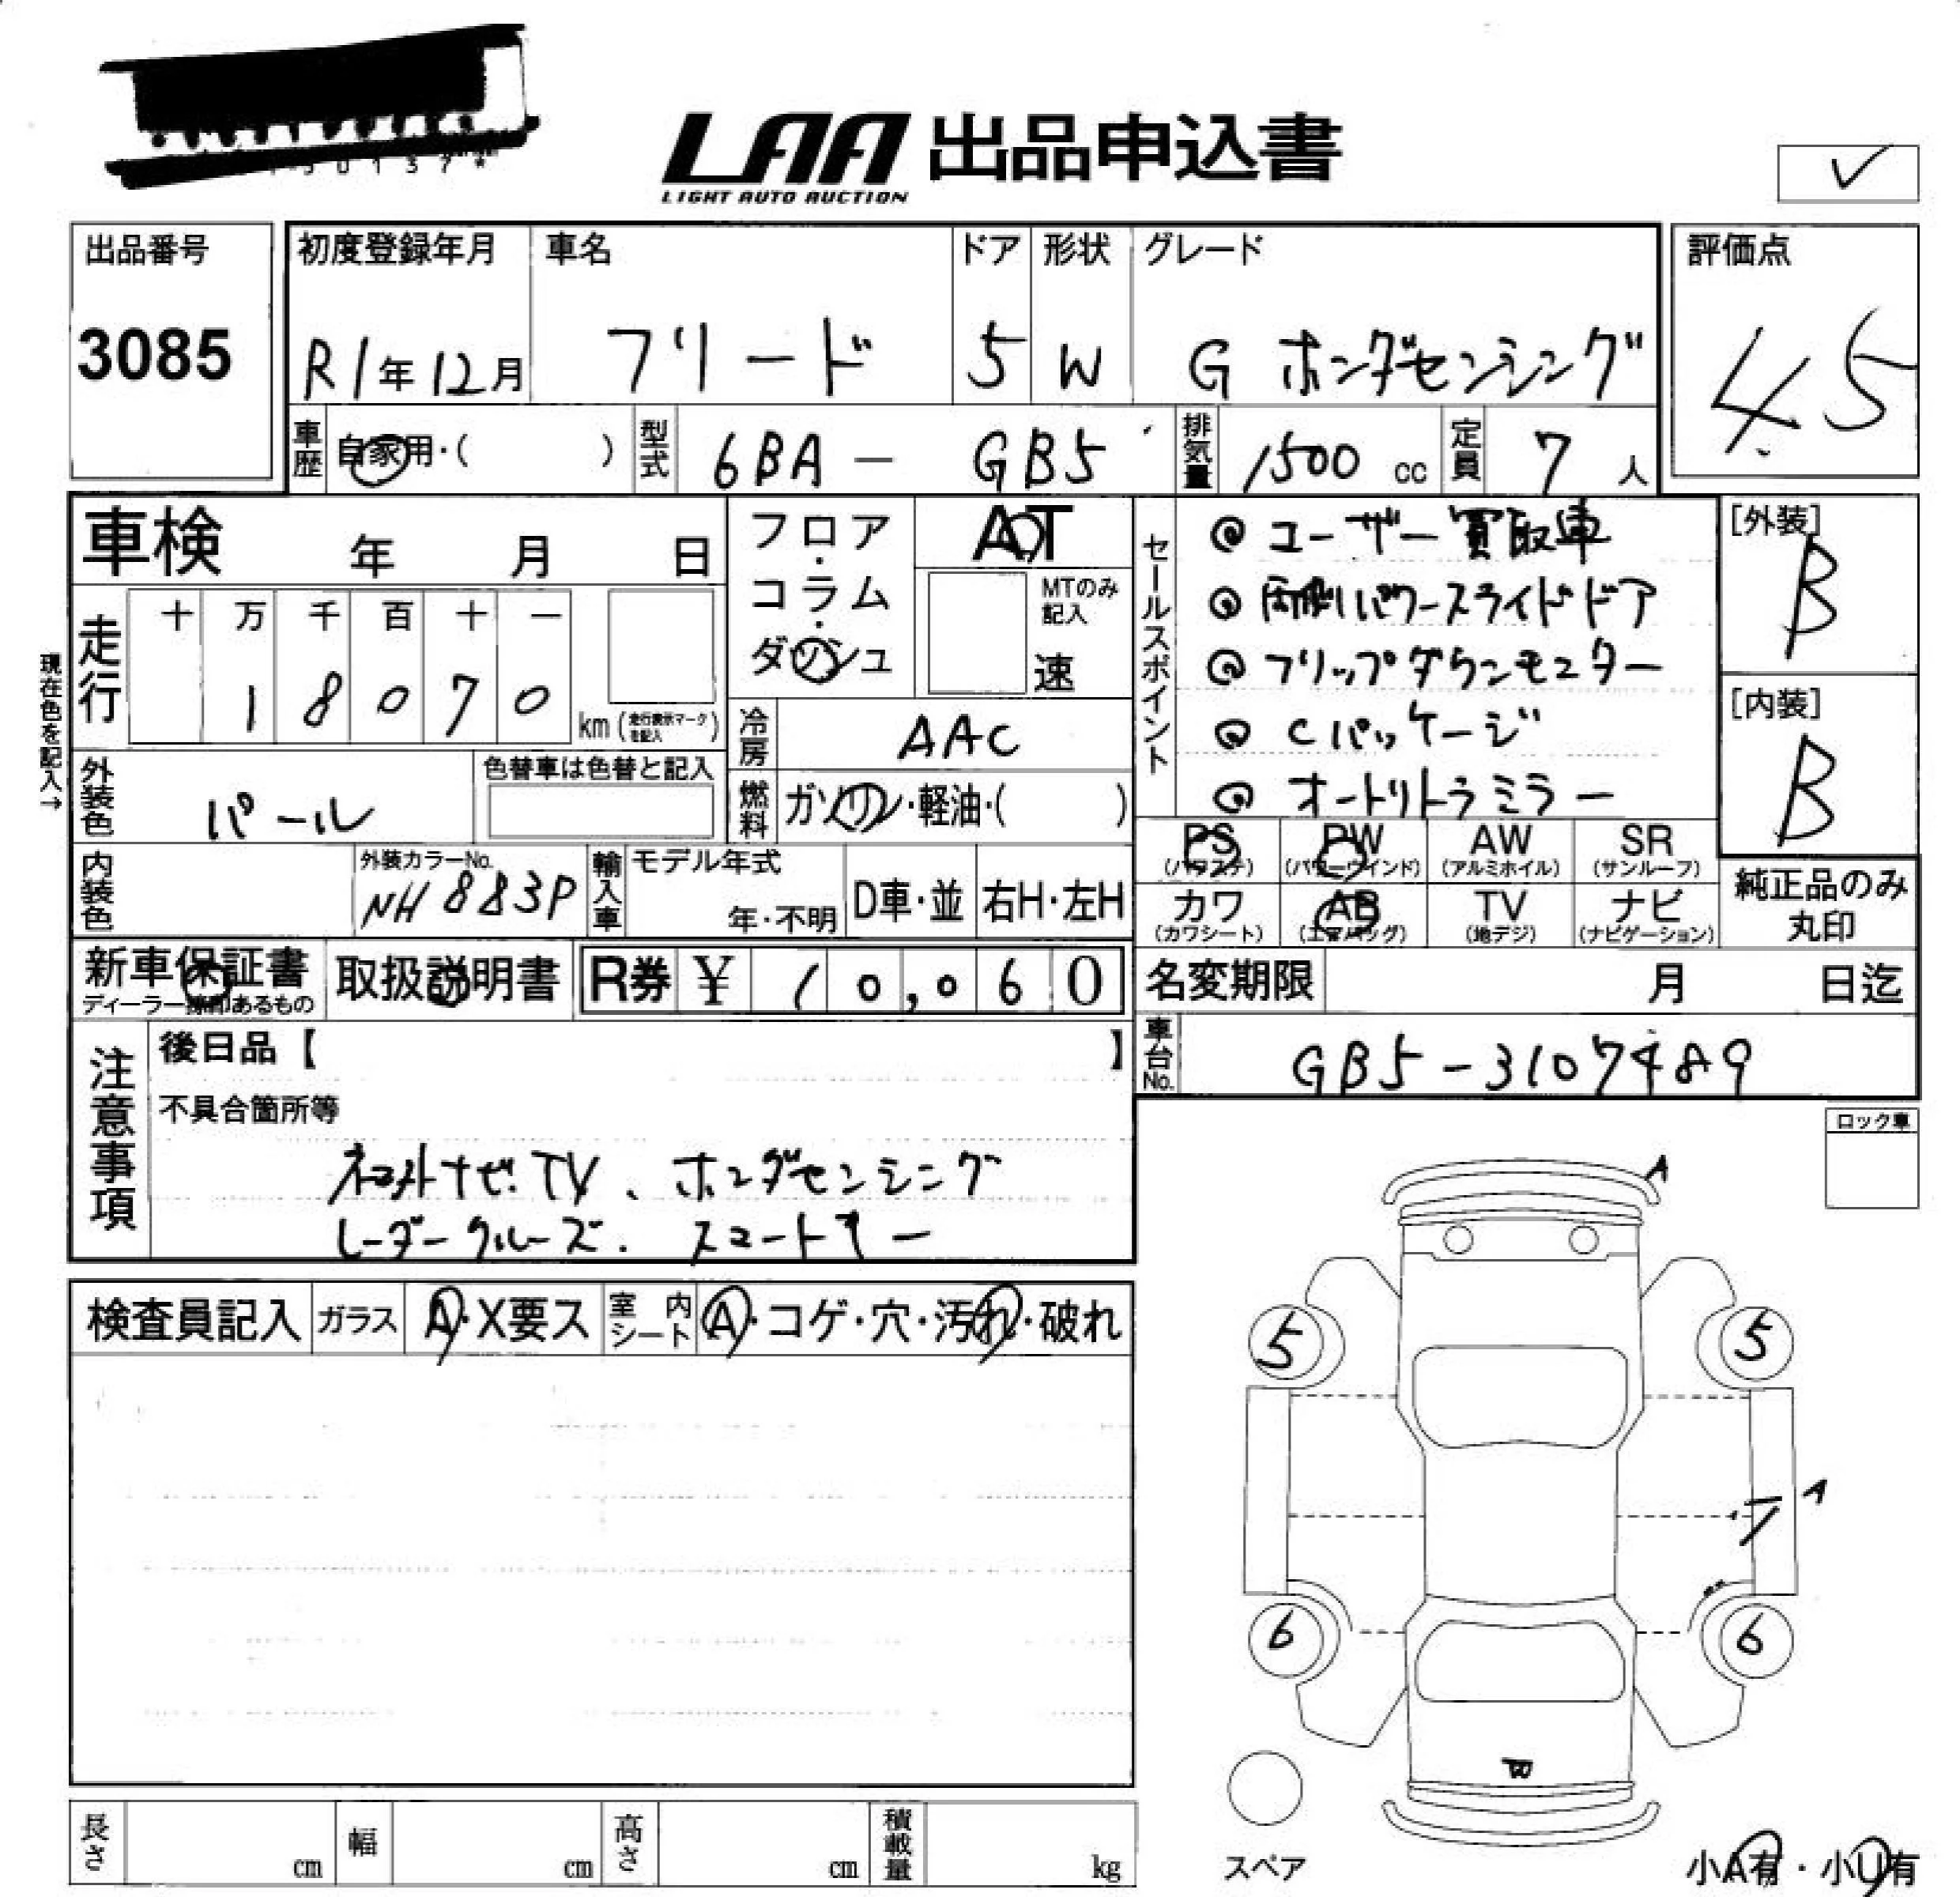 LAA 出品申込書
LIGHT AUTO AUCTION
出品番号
3085
初度登録年月
R1年12月
車名
フリード
ドア
5
形状
W
グレード
G ホンダセンシング
評価点
4.5
車歴 自家用・( )
型式 6BA - GB5
排気量 1500 cc
定員 7 人
車検 年 月 日
フロア・コラム・ダッシュ
AT
MTのみ記入
速
現在色を記入→
走行
十 万 千 百 十 一
1 8 0 7 0
km (走行表示マークを記入)
冷房 AAC
外装色 パール
色替車は色替と記入
燃料 ガソリン・軽油・( )
内装色
外装カラーNo.
NH883P
輸入車
モデル年式
年・不明
D車・並
右H・左H
セールスポイント
◎ ユーザー買取車
◎ 両側パワースライドドア
◎ フリップダウンモニター
◎ Cパッケージ
◎ オートリトラミラー
[外装]
B
[内装]
B
PS (パワステ)
PW (パワーウインド)
AW (アルミホイル)
SR (サンルーフ)
カワ (カワシート)
AB (エアバッグ)
TV (地デジ)
ナビ (ナビゲーション)
純正品のみ丸印
新車保証書
ディーラー捺印あるもの
取扱説明書
R券 ¥ 10,060
名変期限 月 日迄
車台No. GB5-3107489
注意事項
後日品【 】
不具合箇所等
ナビ.TV、ホンダセンシング
レーダークルーズ. スマートキー
ロック車
検査員記入
ガラス A・X要ス
室内シート A・コゲ・穴・汚れ・破れ
A
5 5
A
6 6
スペア
小A有・小U有
長さ cm
幅 cm
高さ cm
積載量 kg